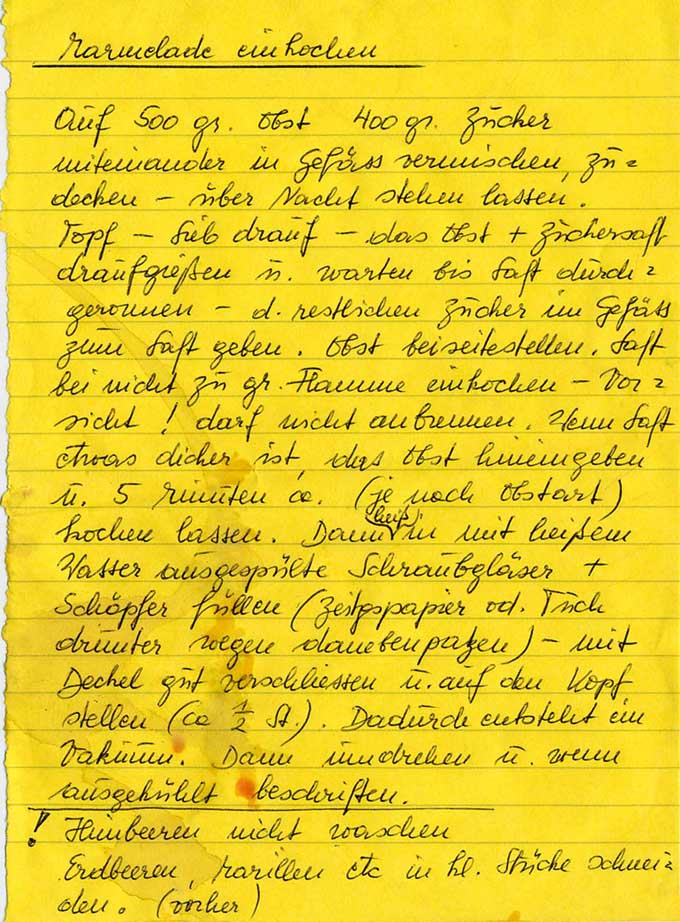 Marmelade einkochen
Auf 500 gr. Obst 400 gr. Zucker
miteinander in Gefäss vermischen, zu=
decken – über Nacht stehen lassen.
Topf – Sieb drauf – das Obst + Zuckersaft
draufgießen u. warten bis Saft durch=
geronnen – d. restlichen Zucker im Gefäss
zum Saft geben. Obst beiseitestellen. Saft
bei nicht zu gr. Flamme einkochen – Vor=
sicht! darf nicht anbrennen. Wenn Saft
etwas dicker ist, das Obst hineingeben
u. 5 Minuten ca. (je nach Obstart)
kochen lassen. Dann heiß in mit heißem
Wasser ausgespülte Schraubgläser +
Schöpfer füllen (Zeitgspapier od. Tuch
drunter wegen danebenpatzen) – mit
Deckel gut verschliessen u. auf den Kopf
stellen (ca 1/2 St.). Dadurch entsteht ein
Vakuum. Dann umdrehen u. wenn
ausgekühlt beschriften.
! Himbeeren nicht waschen
Erdbeeren, Marillen etc in kl. Stücke schnei=
den. (vorher)